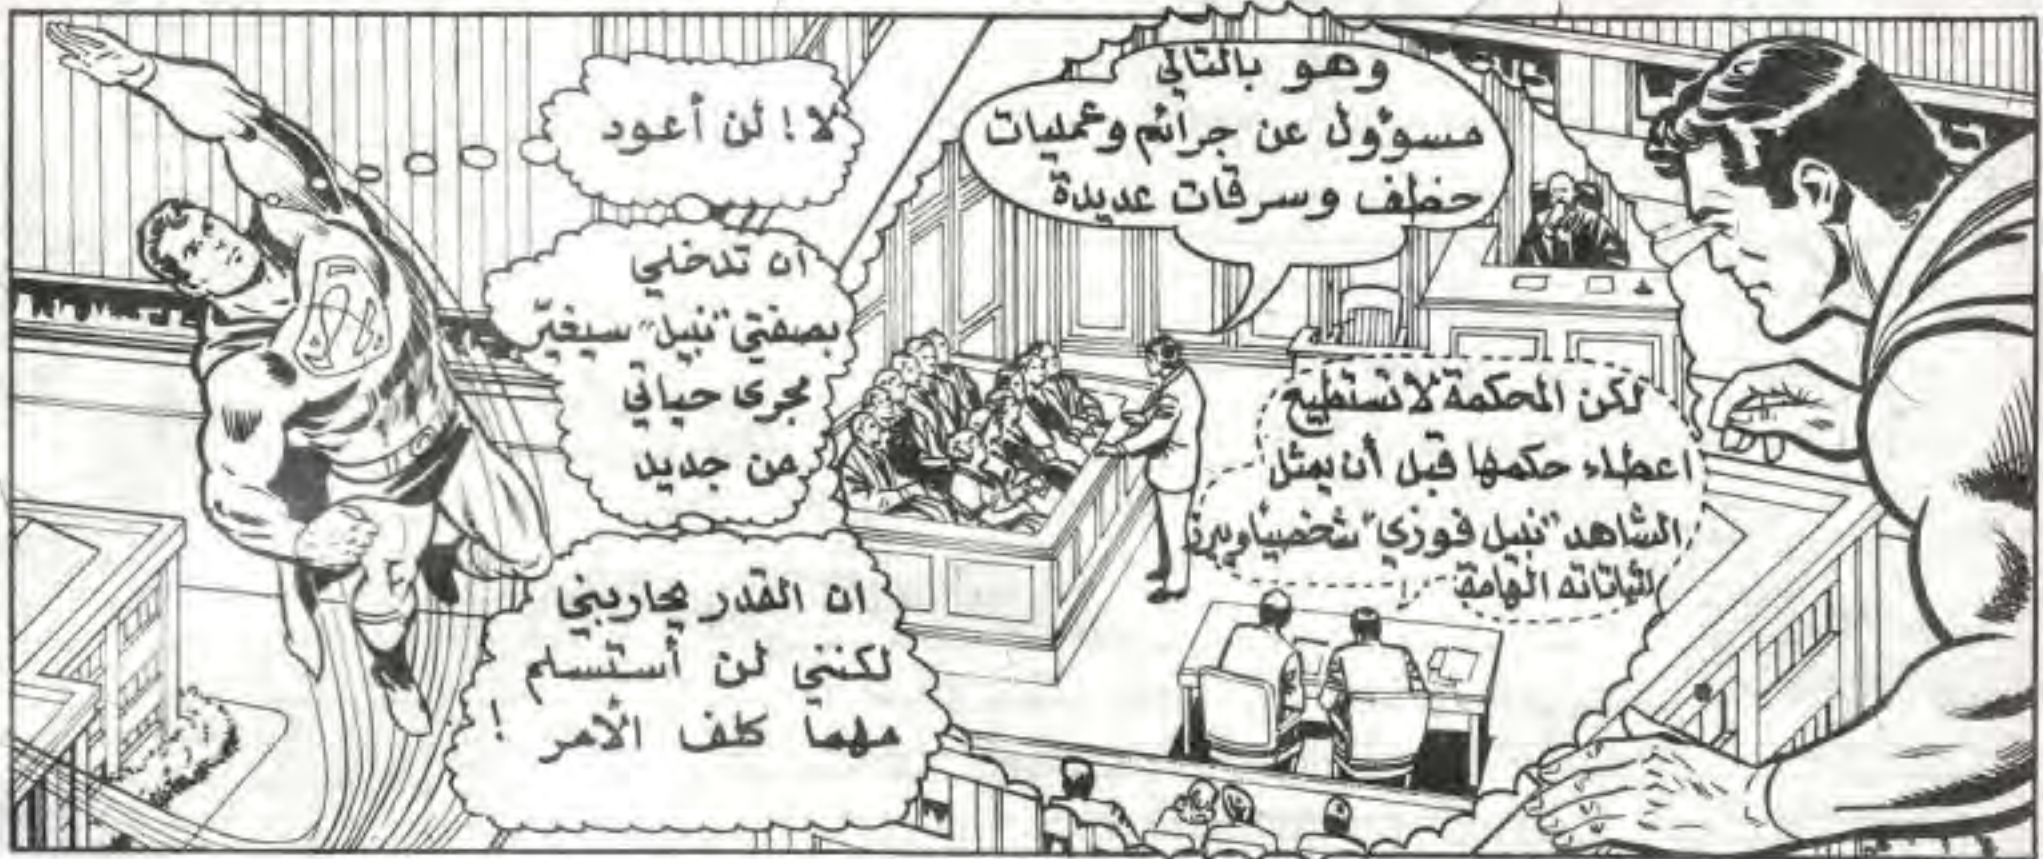 وهو بالتالي
مسوؤول عن جرائم وعمليات
خطف وسرقات عديدة
لكن المحكمة لا تستطيع
اعطاء حكمها قبل أن يمثل
الشاهد "نبيل فوزي" شخصياً ويبرز
اثباتاته الهامة
لا! لن أعود
ان تدخلي
بصفتي "نبيل" سيغيّر
مجرى حياتي
من جديد
ان القدر يحاربني
لكنني لن أستسلم
مهما كلف الأمر!